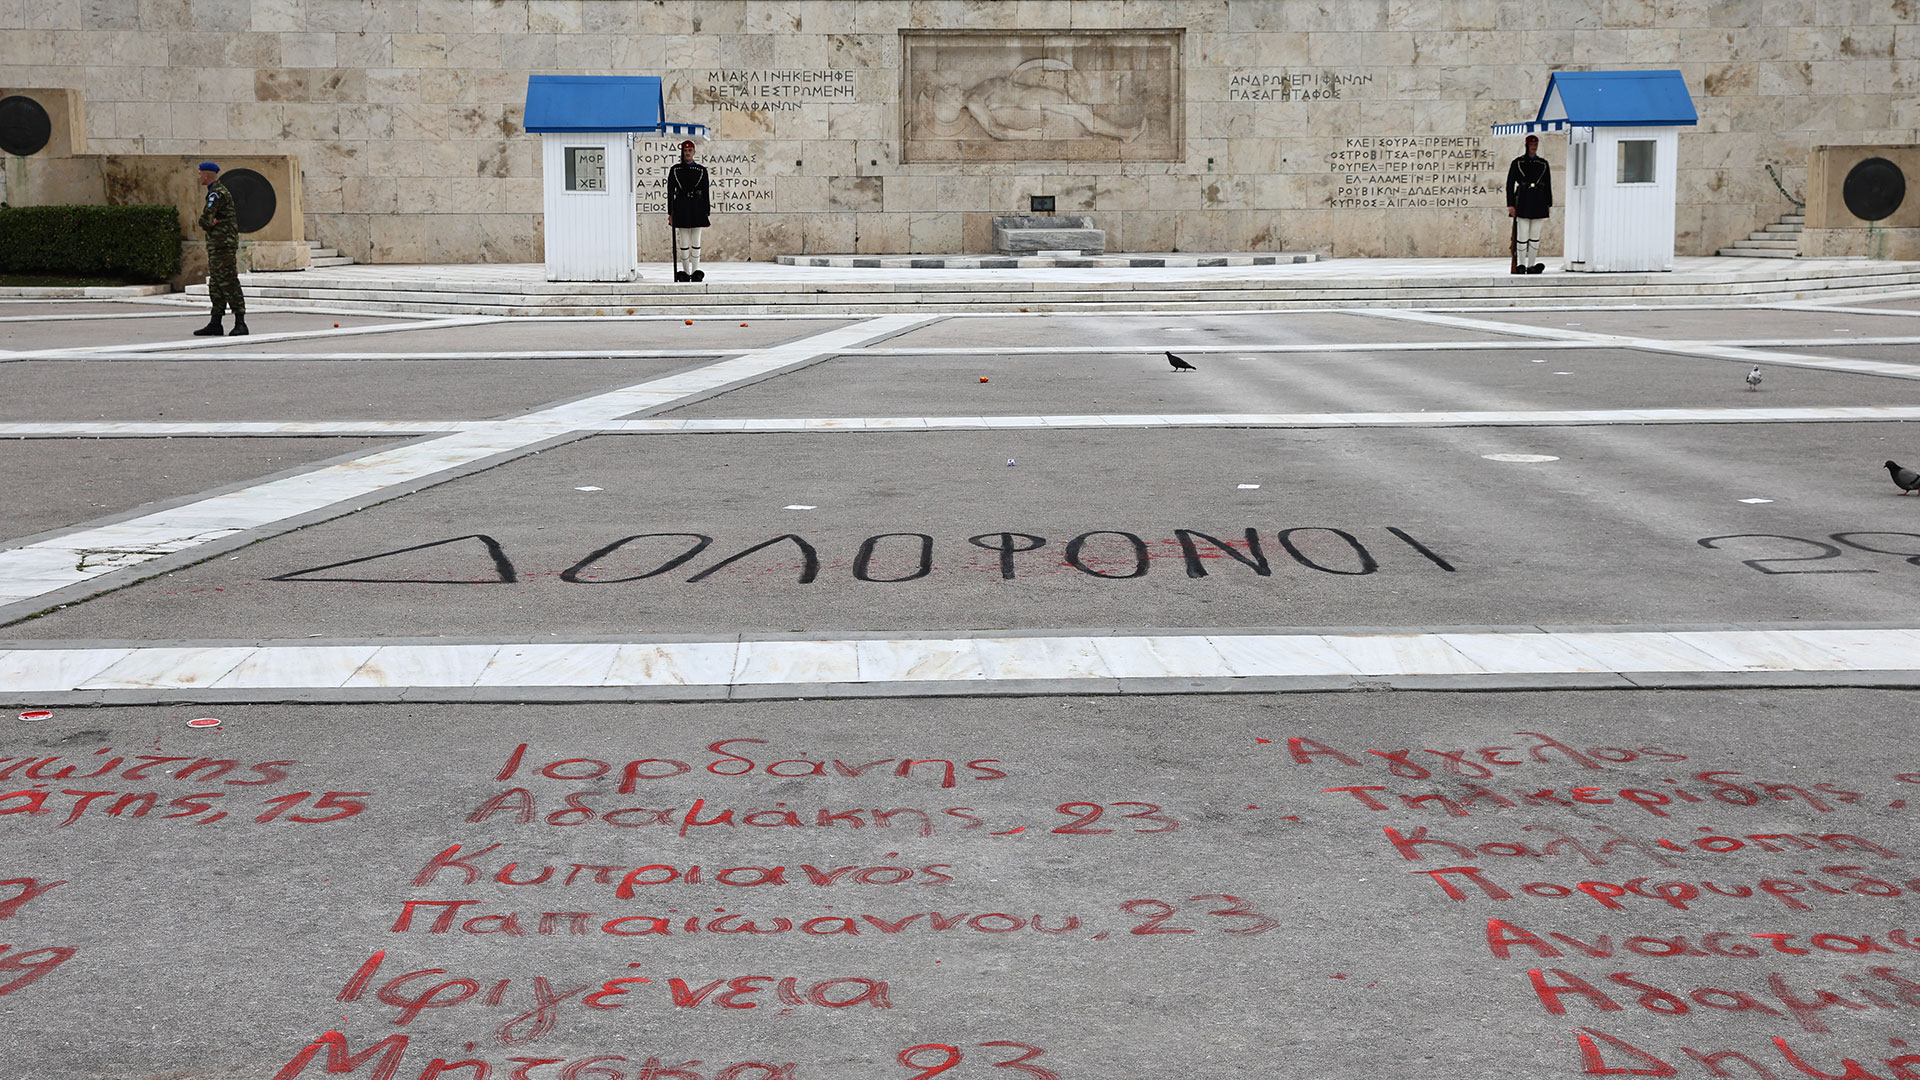 ΜΙΑΚΛΙΝΗΚΕΝΗΦΕ
ΡΕΤΑΙΕΣΤΡΩΜΕΝΗ
ΤΩΝΑΦΑΝΩΝ
ΑΝΔΡΩΝΕΠΙΦΑΝΩΝ
ΠΑΣΑΓΗΤΑΦΟΣ
ΠΙΝΔΟ
ΜΟΡ ΚΟΡΥΤΣ ΚΑΛΑΜΑΣ
Τ ΟΣ=Τ ΣΙΝΑ
ΧΕΙ Α=ΑΡ ΑΣΤΡΟΝ
=ΜΠΟ Ι=ΚΑΛΠΑΚΙ
ΓΕΙΟΣ ΝΤΙΚΟΣ
ΚΛΕΙΣΟΥΡΑ=ΠΡΕΜΕΤΗ
ΟΣΤΡΟΒΙΤΣΑ=ΠΟΓΡΑΔΕΤΣ=
ΡΟΥΠΕΛ=ΠΕΡΙΘΩΡΙ=ΚΡΗΤΗ
ΕΛ=ΑΛΑΜΕΙΝ=ΡΙΜΙΝΙ
ΡΟΥΒΙΚΩΝ=ΔΩΔΕΚΑΝΗΣΑ=Κ
ΚΥΠΡΟΣ=ΑΙΓΑΙΟ=ΙΟΝΙΟ
ΔΟΛΟΦΟΝΟΙ 28
ιώτης
άτης, 15
9
Ιορδάνης
Αδαμάκης, 23
Κυπριανός
Παπαϊωάννου, 23
Ιφιγένεια
Μήτσκα 23
Άγγελος
Τηλκερίδης,
Καλλιόπη
Πορφυρίδ
Αναστασ
Αδαμίδ
Δημή